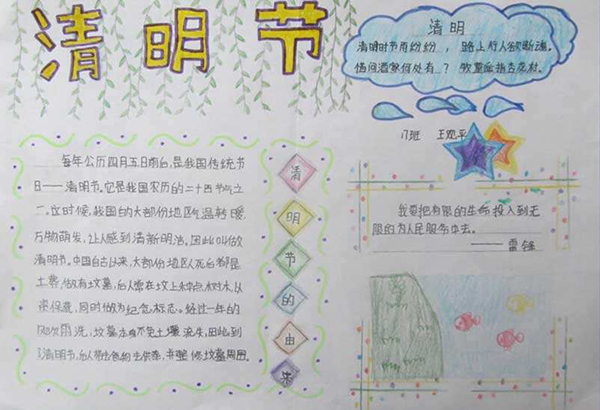 清明节
清明
清明时节雨纷纷，路上行人欲断魂。
借问酒家何处有？牧童遥指杏花村。
门班 王
每年公历四月五日前台,是我国传统节
日——清明节,它是我国农历的二十四节气之
二,这时候,我国白的大部份地区气温转暖,
万物萌发,让人感到清新明洁。因此叫做
清明节。中国自古以来,大部份地区死后都是
土葬,做有坟墓,后人需在坟上
保遗,同时做为纪念标志。经过一年的
风吹雨洗,坟墓土壤流失,因此到
了清明节,后人带去食物去供奉,并整修坟墓周围
清
明
节
的
由
来
我要把有限的生命,投入到无
限的为人民服务中去。
——雷锋